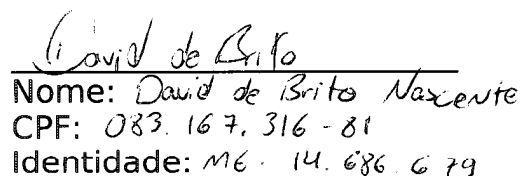 David de Brito
Nome: David de Brito Nascente
CPF: 083.167.316-81
Identidade: MG. 14.686.679